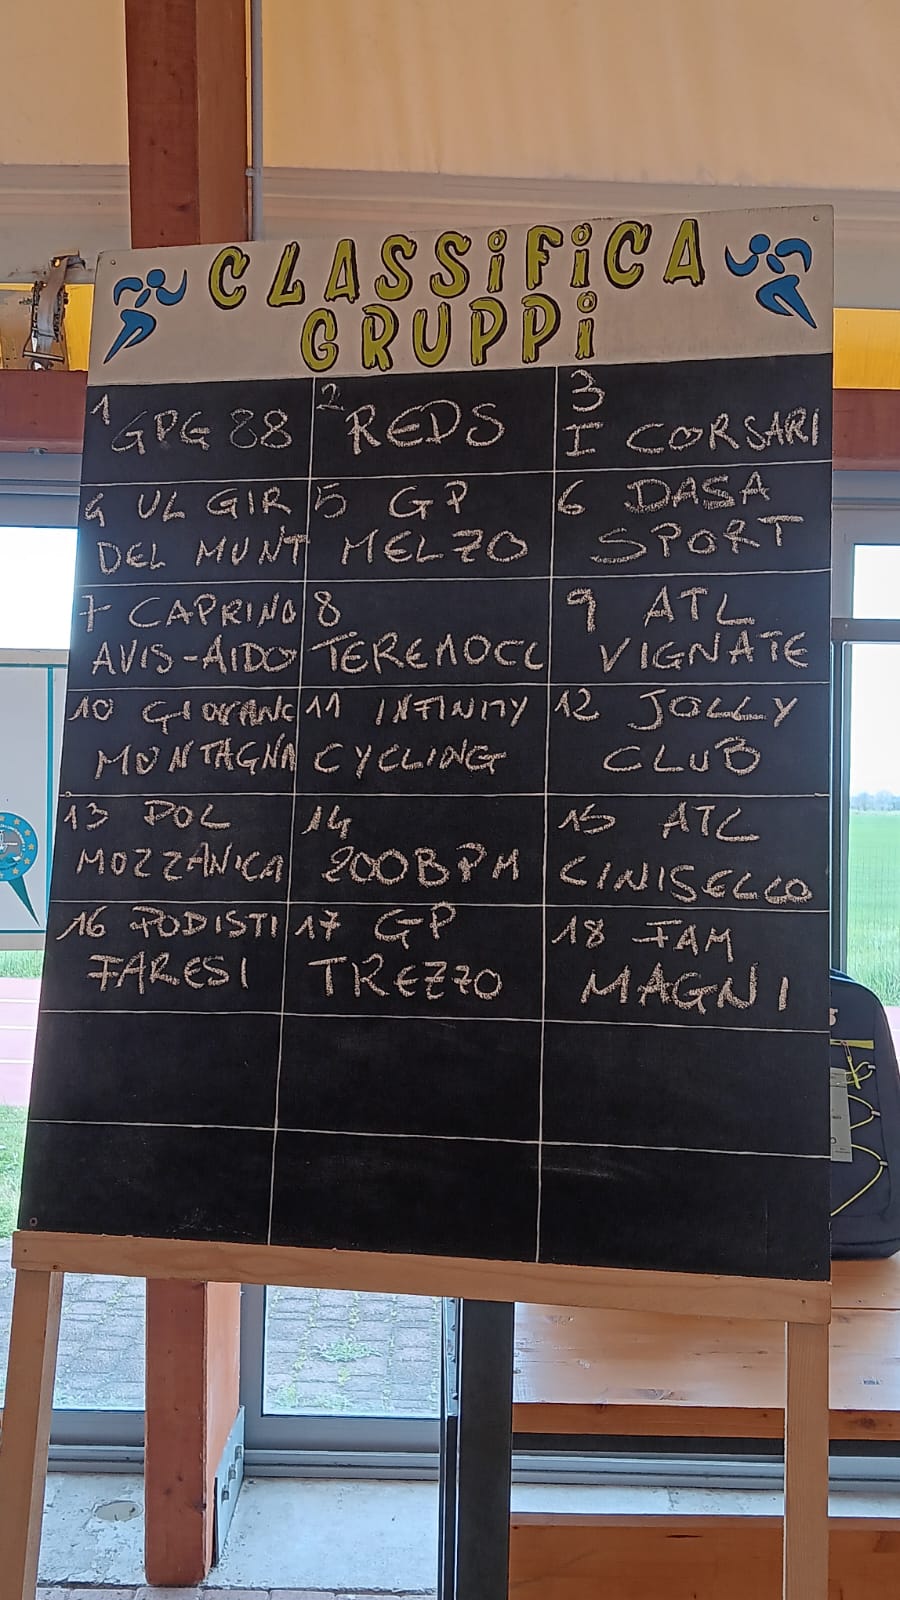 CLASSIFICA
GRUPPI
1 GPG 88
2 REDS
3
I CORSARI
4 UL GIR
DEL MUNT
5 GP
MELZO
6 DASA
SPORT
7 CAPRINO
AVIS-AIDO
8
TEREMOCC
9 ATL
VIGNATE
10 GIOVANE
MONTAGNA
11 INFINITY
CYCLING
12 JOLLY
CLUB
13 POL
MOZZANICA
14
200BPM
15 ATL
CINISELLO
16 PODISTI
FARESI
17 GP
TREZZO
18 FAM
MAGNI